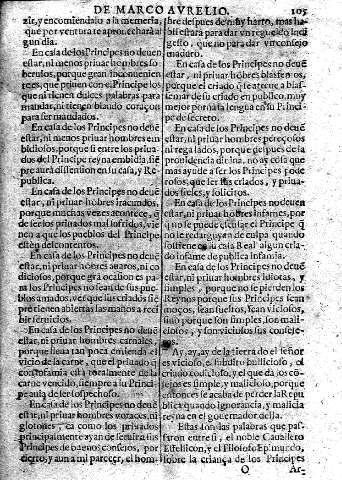 DE MARCO AVRELIO. 105
zir, y encomiendalo a la memoria,
que por ventura te aprouechara al
gun dia.
En casa de los Principes no deuen
estar, ni menos priuar hombres so
beruios, porque gran inconueniente
es, que priuen con el Principe los
que ni tienen dulces palabras para
mandar, ni tienen blando coraçon
para ser mandados.
En casa de los Principes no deuē
estar, ni menos priuar hombres em
bidiosos, porque si entre los priua
dos del Principe reyna embidia, siē
pre aura dissension en su casa, y Re
publica.
En casa de los Principes no deuē
estar, ni priuar hombres iracundos,
porque muchas vezes acontece, q̄
de ser los priuados mal sofridos, vie
nen a que los pueblos del Principe
esten descontentos.
En casa de los Principes no deuē
estar, ni priuar hombres auaros, ni co
diciosos, porque gra ocasion es pa
ra los Principes no sean de sus pue
blos amados, ver que sus criados siē
pre tienen abiertas las manos a reci
bir seruicios.
En casa de los Principes no deuē
estar, ni priuar hombres carnales,
porque tiene tan poca en el
vicio de la carne, que el priuado q̄
esta totalmente de la
carne vencido, siempre a su Princi
pe aura de ser sospechoso.
En casa de los Principes no deuē
estar, ni priuar hombres voraces, ni
glotones, ca como los priuados
principalmente ayan de seruir a sus
Principes de buenos consejos, por
cierto, y aun a mi parecer, el hom-
bre despues de muy harto, mas ha-
bil estara para dar vn regoldo indi
gesto, que no para dar vn consejo
maduro.
En casa de los Principes no deuē
estar, ni priuar hōbres blasfemos,
porque el criado q̄ se atreue a blas
femar de su criado en publico, muy
mejor pornà la lengua en su Princi
pe de secreto.
En casa de los Principes no deuē
estar, ni priuar hombres pereçosos
ni regalados, porque despues de la
prouidencia diuina, no ay cosa que
mas ayude a ser los Principes pode
rosos, que ser sus criados, y priua-
dos fieles, y solicitos.
En casa de los Principes no deuen
estar, ni priuar hombres infames, por
que no se puede escusar el Principe q̄
no le redarguyan de culpa quando
sostiene en su casa Real algun cria-
do infame de publica infamia.
En casa de los Principes no deuen
estar, ni priuar hombres idiotas, y
simples, porque no se pierden los
Reynos porque sus Principes sean
moços, sean sueltos, sean viciosos,
sino porque son simples, son mali-
ciosos, y son viciosos sus conseje-
ros.
Ay, ay, ay de la tierra do el señor
es vicioso, el subdito bullicioso, el
criado codicioso, y el que da los cō
sejos es simple, y malicioso, porque
entonces se acaba de perder la Repu
blica quando ignorancia, y malicia
reyna en el gouernador della.
Estas son las palabras que pas-
saron entre si, el noble Cauallero
Estellicon, y el Filosofo Epimundo,
sobre la criança de los Principes
O Ar-